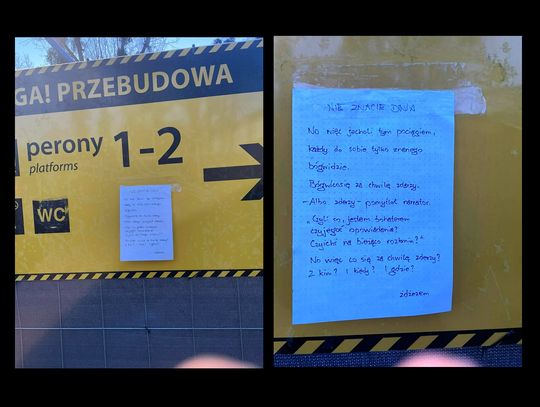 GA! PRZEBUDOWA
perony 1-2
platforms
WC
NIE ZNACIE DNIA
No więc jechali tym pociągiem,
każdy do sobie tylko znanego
bógwidzie.
Bógwicosię za chwilę zdarzy.
- Albo zdarzy - pomyślał narrator.
"Czyli co, jestem bohaterem
czyjegoś opowiadania?
Czyichś na bieżąco rozkmin?"
No więc co się za chwilę zdarzy?
Z kim? I kiedy? I gdzie?
zdzeszem